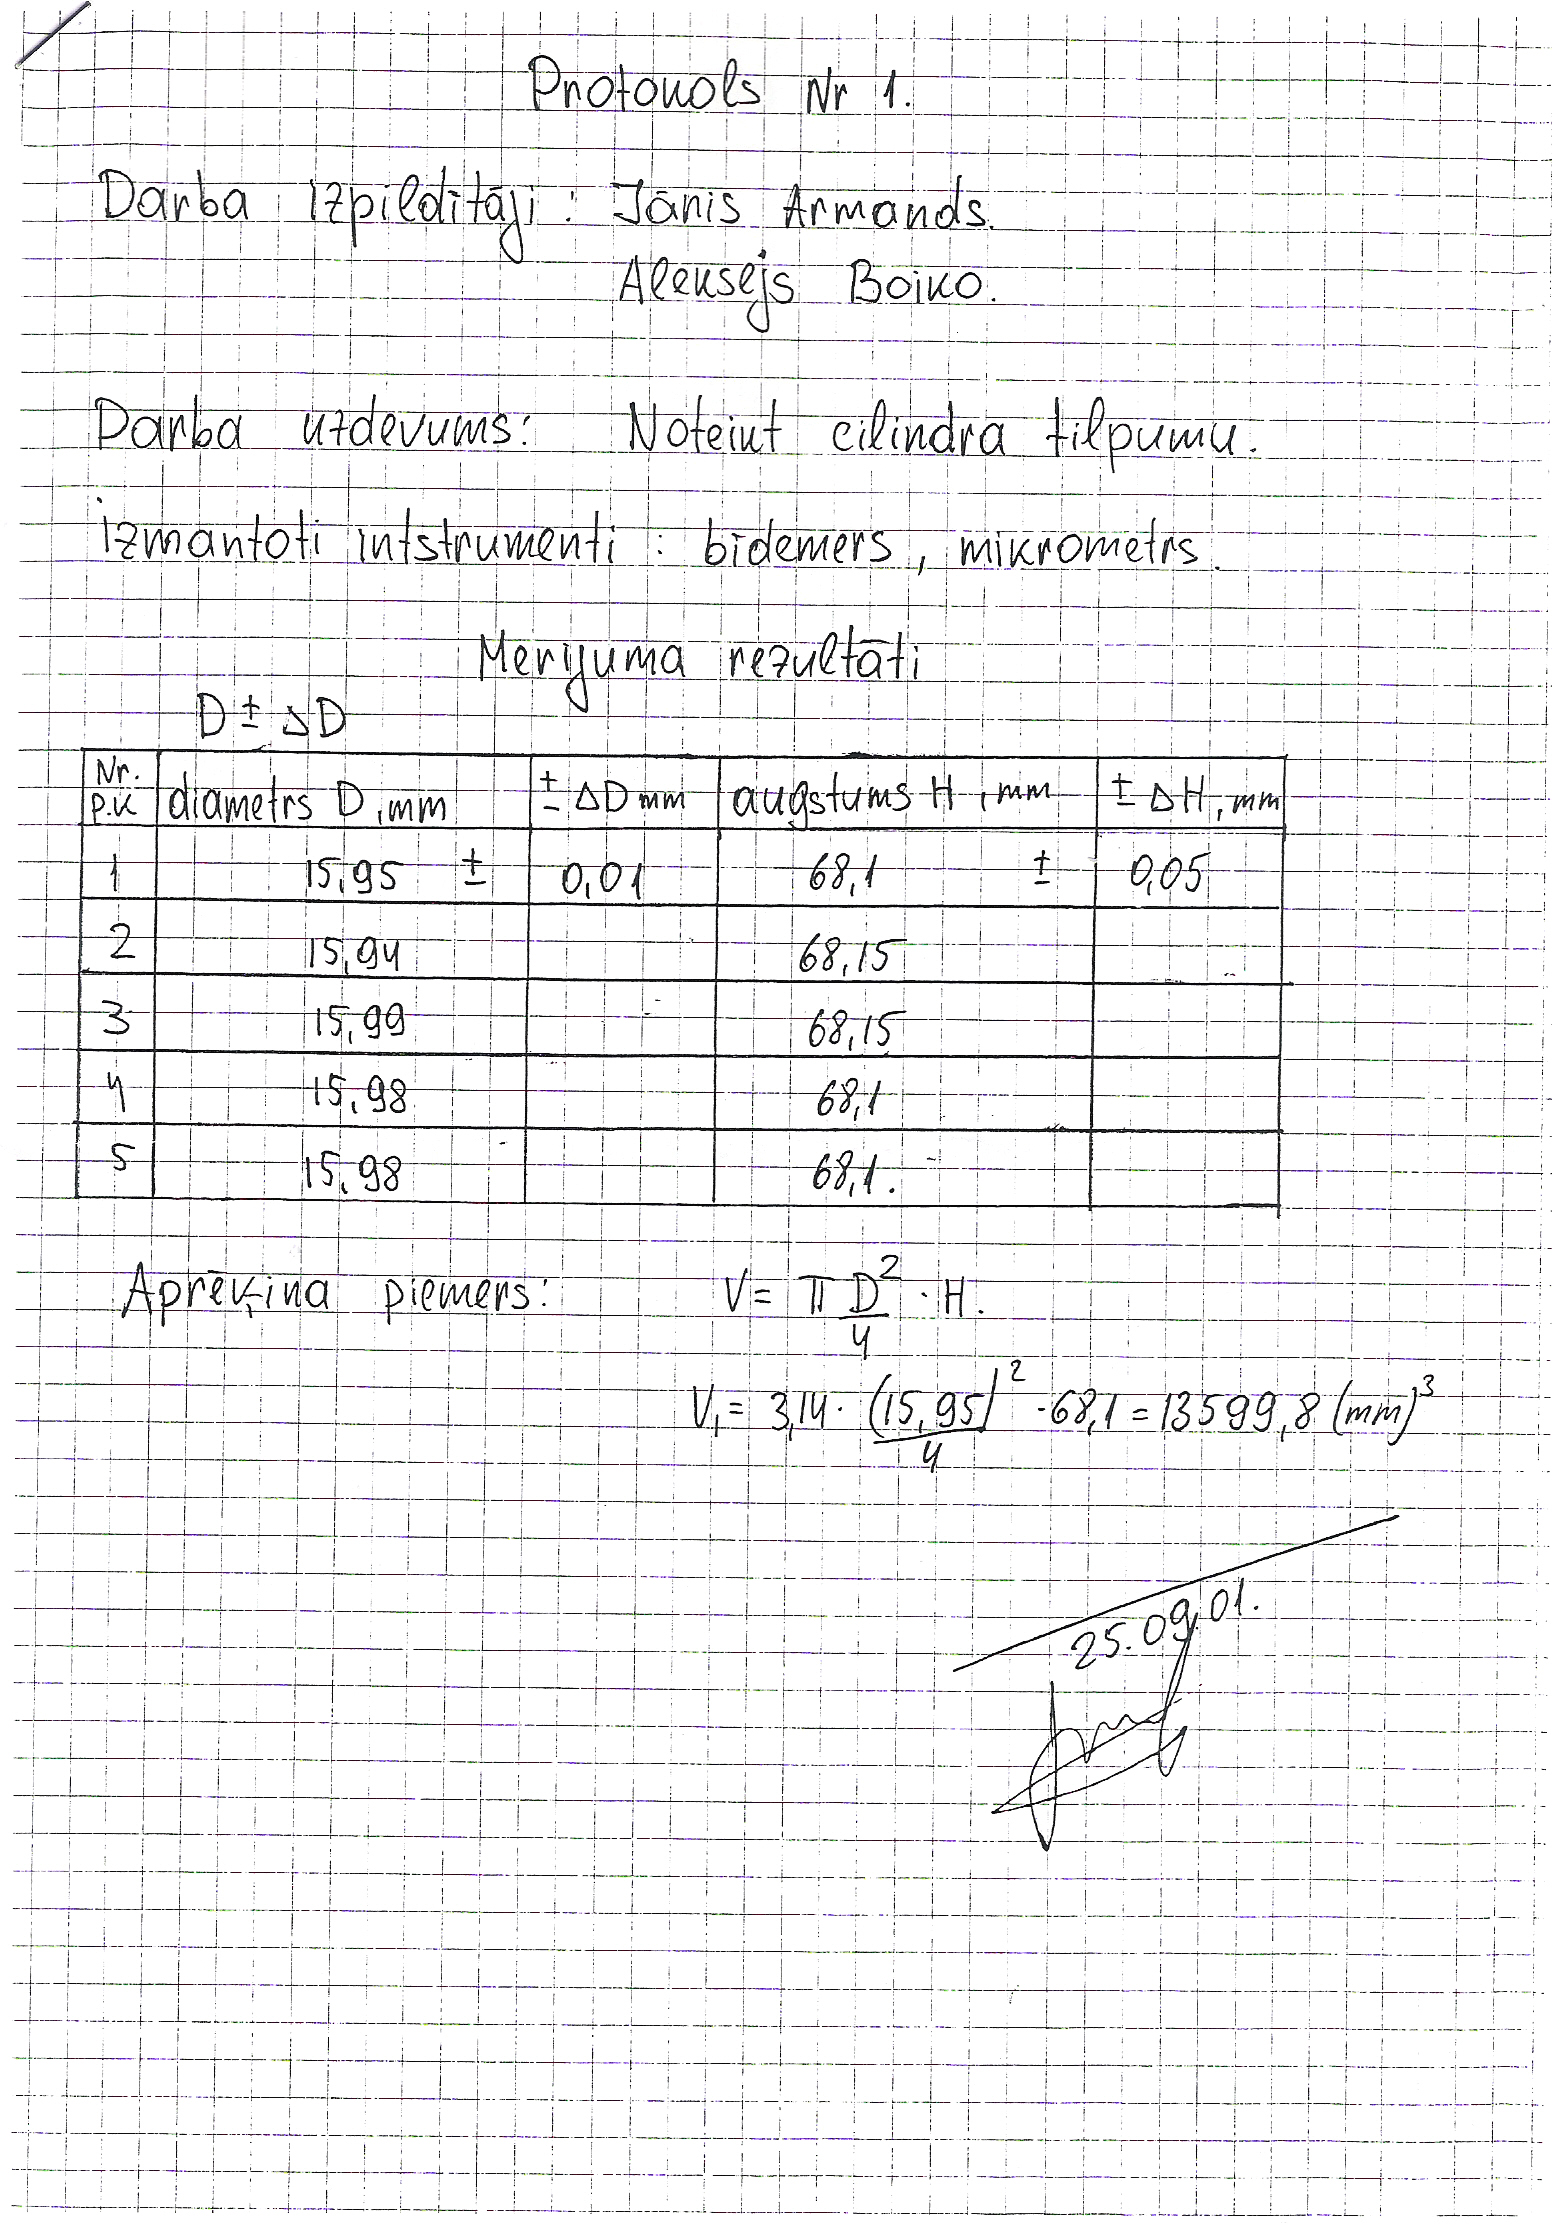 Protokols Nr 1.
Darba izpildītāji: Jānis Armands.
Aleksejs Boiko.
Darba uzdevums: Noteikt cilindra tilpumu.
izmantoti intstrumenti: bīdemers, mikrometrs.
Merijuma rezultāti
D ± ΔD
Nr. p.k diametrs D, mm ± ΔD mm augstums H, mm ± ΔH, mm
1 15,95 ± 0,01 68,1 ± 0,05
2 15,94 68,15
3 15,99 68,15
4 15,98 68,1
5 15,98 68,1.
Aprēķina piemers: V = π D²/4 · H.
V₁ = 3,14 · (15,95)²/4 · 68,1 = 13599,8 (mm)³
25.09.01.